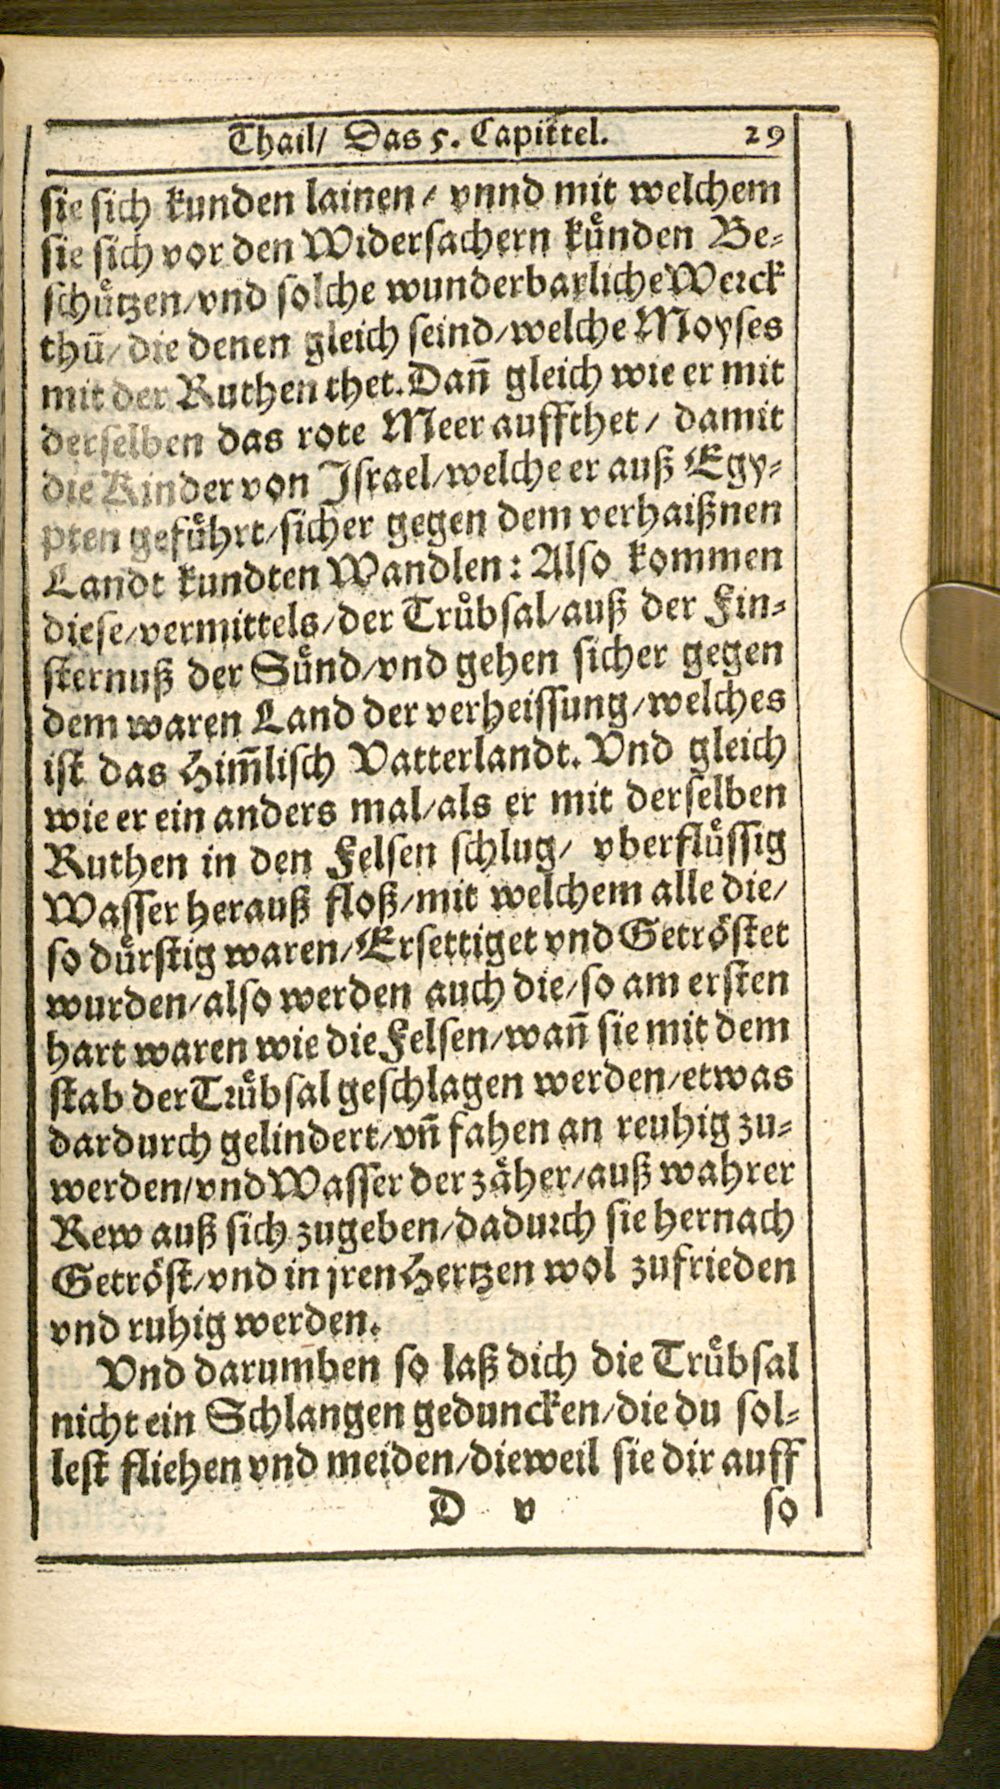 Thail/ Das 5. Capittel. 29
sie sich kunden lainen/ vnnd mit welchem
sie sich vor den Widersachern kuͤnden Be-
schuͤtzen/vnd solche wunderbarliche Werck
thuͤ/ die denen gleich seind/welche Moyses
mit der Ruthen thet. Dañ gleich wie er mit
derselben das rote Meer auffthet/ damit
die Kinder von Israel/welche er auß Egy-
pten gefuͤhrt/sicher gegen dem verhaißnen
Landt kundten Wandlen: Also kommen
diese/vermittels/der Truͤbsal/auß der Fin-
sternuß der Suͤnd/vnd gehen sicher gegen
dem waren Land der verheissung/welches
ist das Him̃lisch Vatterlandt. Vnd gleich
wie er ein anders mal/als er mit derselben
Ruthen in den Felsen schlug/ vberfluͤssig
Wasser herauß floß/mit welchem alle die/
so duͤrstig waren/Ersettiget vnd Getroͤstet
wurden/also werden auch die/so am ersten
hart waren wie die Felsen/wañ sie mit dem
stab der Truͤbsal geschlagen werden/etwas
dardurch gelindert/vñ fahen an reuhig zu-
werden/vnd Wasser der zaͤher/auß wahrer
Rew auß sich zugeben/dadurch sie hernach
Getroͤst/vnd in jren Hertzen wol zufrieden
vnd ruhig werden.
Vnd darumben so laß dich die Truͤbsal
nicht ein Schlangen geduncken/die du sol-
lest fliehen vnd meiden/dieweil sie dir auff
D v so